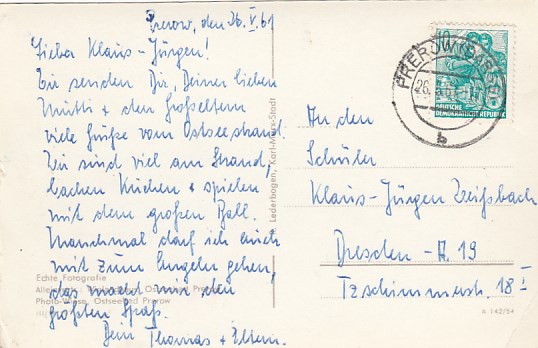 Prerow, den 26.V.61
Lieber Klaus-Jürgen!
Wir senden Dir, Deiner lieben
Mutti + den Großeltern
viele Grüße vom Ostseestrand.
Wir sind viel am Strand,
backen Kuchen + spielen
mit dem großen Ball.
Manchmal darf ich auch
mit zum Angeln gehen,
das macht mir den
größten Spaß.
Dein Thomas + Eltern.
Echte Fotografie
Ostseebad Prerow
Lederbogen, Karl-Marx-Stadt
10
DEUTSCHE
DEMOKRATISCHE REPUBLIK
PREROW
26.
b
An den
Schüler
Klaus-Jürgen Zeißbach
Dresden-A. 19
Tzschimmerstr. 18 I
142/54